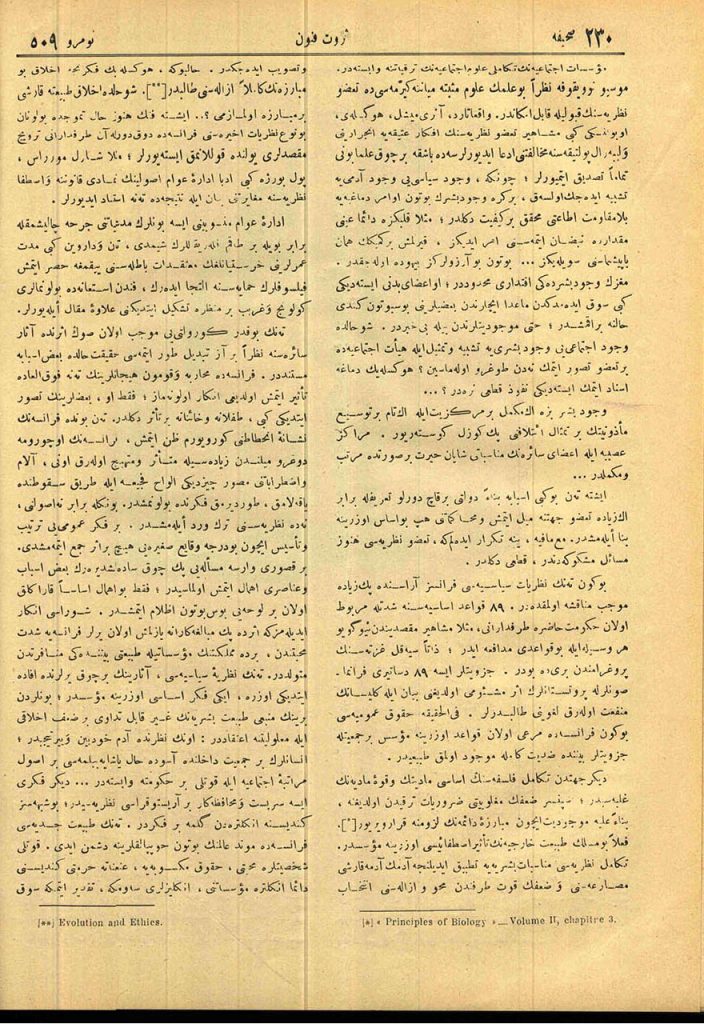 صحیفه ٢٣٠
ثروت فنون
نومرو ٥٠٩
مؤسسات اجتماعیه‌نك تكاملی علوم اجتماعیه‌نك ترقیاتنه وابسته‌در.
موسیو نوویقوفه نظراً بو علمك علوم مثبته میاننه كیرمه‌سی ده تعضو
نظریه‌سنك قبولیله قابل اولاجقدر.
اونلر كبی مشاهیر تعضو نظریه‌سنك افكار عتیقه‌یه انجرارینی
تماماً تصدیق ایتمیورلر ؛ چونكه ، وجود سیاسی‌یی وجود آدمی‌یه
تشبیه ایده‌جك اولسه‌ق ، بركره وجود بشرك بوتون اوامر دماغیه‌یه
بلامقاومت اطاعتی محقق بر كیفیت دكلدر ؛ مثلا قلبكزه دائما عینی
مقدارده نبضان ایتمه‌سنی امر ایدیكز ، قیرلمش بر كمیكك همان
یاپیشماسنی سویله‌یكز ... بوتون بو آرزولركز بیهوده اوله‌جقدر .
مغزك وجود بشرده‌كی اقتداری محدوددر ؛ اواعضای بدنی ایسته‌دیكی
كبی سوق ایده‌مدكدن ماعدا ایچلرندن بعضیلرینی بوسبوتون كندی
حالنه براقمشدر ؛ حتی موجودیتلرندن بیله بی‌خبردر . شو حالده
وجود اجتماعی‌یی وجود بشری‌یه تشبیه و تمثیل ایله هیأت اجتماعیه‌ده
بر تعضو تصور ایتمك نه‌دن طوغرو اوله‌ماسین ؟ هوكسله‌یك دماغه
اسناد ایتمك ایسته‌دیكی نفوذ قطعی نره‌در ؟ ...
وجود بشر بزه اك مكمل بر مركزیت ایله اك تام بر توسیع
مأذونیتك بر تمثال ائتلافی پك كوزل كوسته‌ریور . مراكز
عصبیه ایله اعضای سائره‌نك مناسباتی شایان حیرت بر صورتده مرتب
و مكملدر ...
ایشته تن بوكبی اسبابه بناءً دولتی بر قاچ دورلو تعریفله برابر
اك زیاده تعضو جهتنه میل ایتمش و محاكماتنی هپ بو اساس اوزرینه
بنا ایله‌مشدر . مع مافیه ، ینه تكرار ایده‌لم كه ، تعضو نظریه‌سی هنوز
مسائل مشكوكه‌دندر ، قطعی دكلدر .
بوكون تن‌ك نظریات سیاسیه‌سی فرانسز آراسنده پك زیاده
موجب مناقشه اولمقده‌در . ٨٩ قواعد اساسیه‌سنه شدتله مربوط
اولان حكومت حاضره طرفدارانی ، مثلا مشاهیر مقصدیندن
هر وسیله ایله بو قواعدی مدافعه ایدر ؛ ذاتاً سیه‌قل غزته‌سنك
پروغرامندن بری ده بودر . جزویتلر ایسه ٨٩ دساتیری فرانماـ
صونلرله پروتستانلرك اثر مشئومی اولدیغنی بیان ایله كلیسانك
منفعت اوله‌رق لغونی طالبدرلر . فی‌الحقیقه حقوق عمومیه‌سی
بوكون فرانسه‌ده مرعی اولان قواعد اوزرینه مؤسس بر جمعیتله
جزویتلر بیننده ضدیت كامله موجود اولمق طبیعیدر .
دیكر جهتدن تكامل فلسفه‌سنك اساسی مادیتك و قوۀ مادیه‌نك
غلبه‌سیدر ؛ سپنسر ضعفك مغلوبیتی ضروریات ترقیدن اولدیغنه ،
بناءً علیه موجودیت ایچون مبارزۀ دائمه‌نك لزومنه قرار ویریور [*].
فعلاً بو مسلك طبیعت خارجیه‌نك تأثیر اصطفائیسی اوزرینه مؤسسدر.
تكامل نظریه‌سی مناسبات بشریه‌یه تطبیق ایدیلنجه آدمك آدمه قارشی
مصارعه‌سنی و ضعفك قوت طرفندن محو و ازاله‌سنی انتخاب
[*] « Principles of Biology » — Volume II, chapitre 3.
و تصویب ایده‌جكدر . حالبوكه ، هوكسله‌یك فكرنجه اخلاق بو
مبارزه‌نك كاملاً ازاله‌سنی طالبدر [**]. شو حالده اخلاق طبیعته قارشی
بر مبارزه اولمازمی ؟.. ایشته فنك هنوز حال تموجده بولونان
بو نوع نظریات اخیره‌سنی فرانسه‌ده دوق دورله‌آن طرفدارانی ترویج
مقصدلری یولنده قوللانمق ایسته‌یورلر ؛ مثلا شارل مورراس ،
پول بورژه كبی ادبا ادارۀ عوام اصولنك تمادی قانوننه و اصطفا
نظریه‌سنه مغایرتنی بیان ایله نتیجه‌ده تنه استناد ایدیورلر .
ادارۀ عوام منسوبینی ایسه بونلرك مدعیاتنی جرحه چالیشمقله
برابر بویله بر طاقم قله‌ریقللرك شیمدی ، تن و داروین كبی مدت
عمرلرینی خرستیانلغك معتقدات باطله‌سنی ییقمغه حصر ایتمش
فیلسوفلرك حمایه‌سنه التجا ایده‌رك ، فندن استعانه‌ده بولونمالری
كولونج و غریب بر منظره تشكیل ایتدیكنی علاوۀ مقال ایله‌یورلر.
سائره‌سنه نظراً بر آز تبدیل طور ایتمه‌سی حقیقت حالده بعض اسبابه
مستنددر . فرانسه‌ده محاربه و قومون هیجانلرینك تنه فوق العاده
تأثیر ایتمش اولدیغی انكار اولونه‌ماز ؛ فقط او ، بعضلرینك تصور
ایتدیكی كبی ، طفلانه و خائنانه بر تأثر دكلدر. تن بونده فرانسه‌نك
نشانۀ انحطاطنی كورویورم ظن ایتمش ، فرانسه‌نك اوچورومه
دوغرو میلندن زیاده‌سیله متأثر و متهیج اوله‌رق اونی ، آلام
و اضطراباتی مصور چیزدیكی الواح فجیعه ایله طریق سقوطنده
نده نظریه‌سنی ترك و رد ایله‌مشدر . بر فكر عمومی‌یی ترتیب
و تأسیس ایچون بو درجه وقایع صغیره‌یی هیچ بر اثر جمع ایتمه‌مشدی.
بر قصوری وارسه مسأله‌یی پك چوق ساده‌شدیره‌رك بعض اسباب
و عناصری اهمال ایتمش اولماسیدر ؛ فقط بو اهمال اساساً قاراكلق
اولان بر لوحه‌یی بوس بوتون اظلام ایتمشدر . شوراسی انكار
ایدیله‌مز كه اثرده پك مبالغه‌كارانه یازلمش اولان یرلر فرانسه‌یه شدت
محبتندن ، برده مملكتنك مؤسساتیله طبیعتی بیننده‌كی منافرتدن
متولددر. تن‌ك نظریۀ سیاسیه‌سی ، آثارینك بر چوق یرلرنده افاده
ایتدیكی اوزره ، ایكی فكر اساسی اوزرینه مؤسسدر ؛ بونلردن
برینك منبعی طبیعت بشریه‌نك غیر قابل تداوی بر ضعف اخلاقی
ایله معلولیتنه اعتقاددر : اونك نظرنده آدم خودبین و بیرتیجیدر ؛
انسانلرك بر جمعیت داخلنده آسوده حال یاشایه‌بیلمه‌سی بر اصول
مراتبۀ اجتماعیه ایله قوتلی بر حكومته وابسته‌در ... دیكر فكری
ایسه سربست و محافظه‌كار بر آریستوقراسی نظریه‌سیدر ؛ بو شبهه‌سز
كندیسنه انكلتره‌دن كلمه بر فكردر . تن‌ك طبیعت جدیه‌سی
شخصیتلره حرمتی ، حقوق مكسوبه‌یه ، عنعناته حرمتی كندیسنی
دائما انكلتره مؤسساتنی ، انكلیزلری سومكه ، تقدیر ایتمكه سوق
[**] Evolution and Ethics.